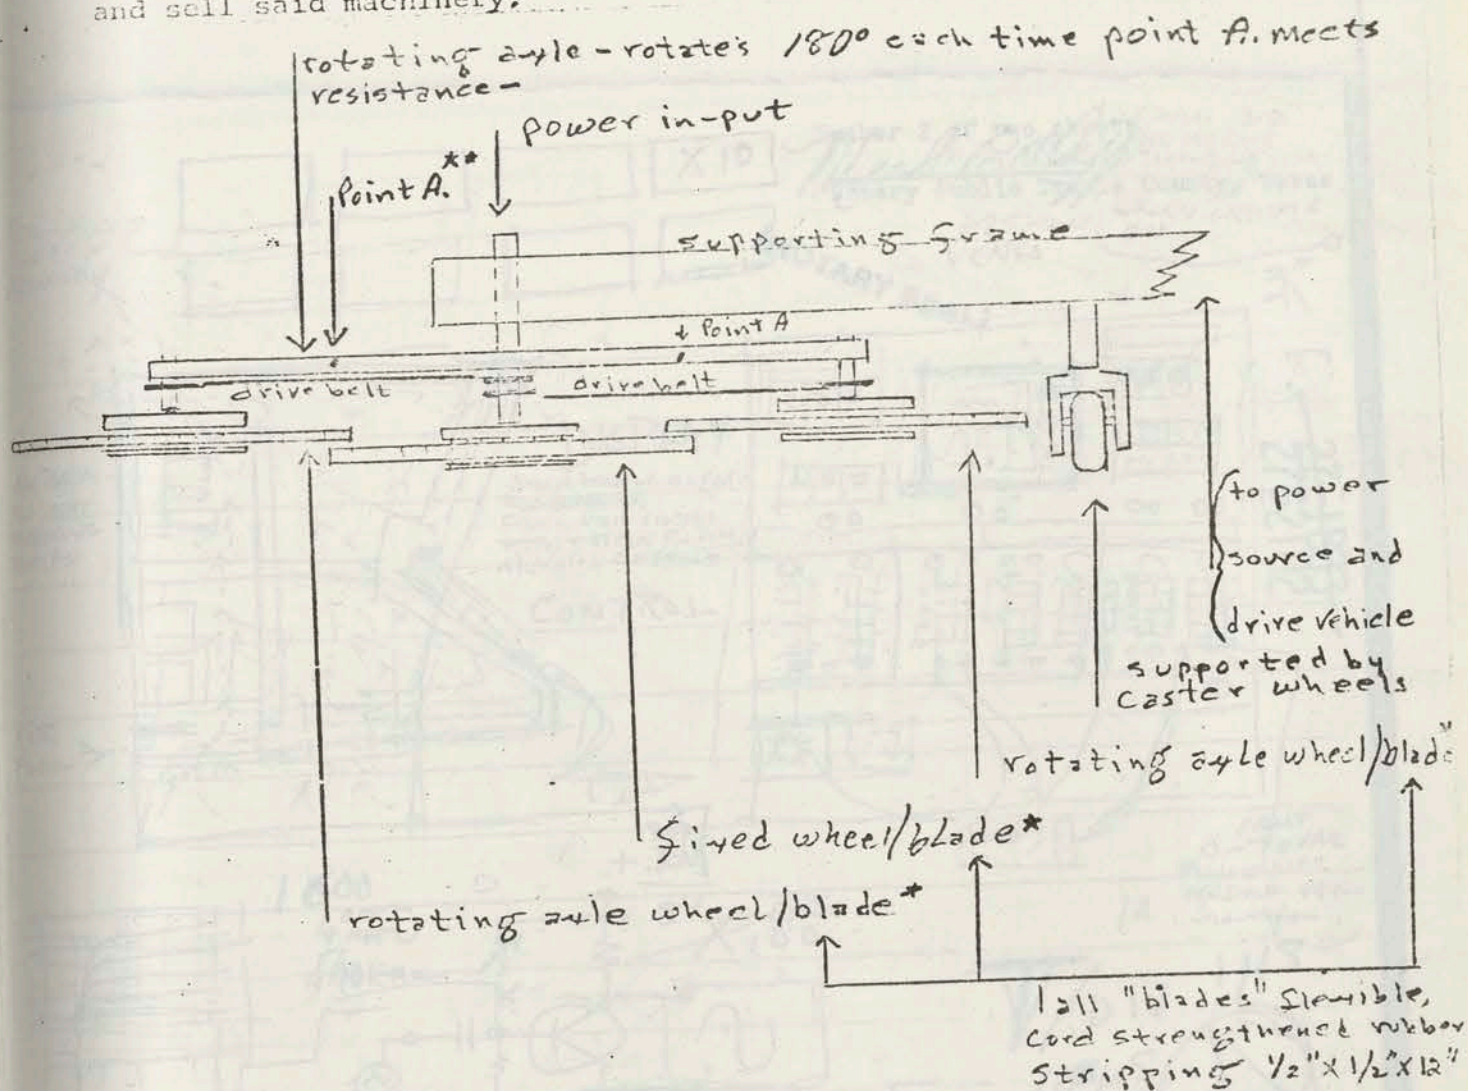 and sell said machinery.
rotating axle - rotate's 180° each time point A. meets
resistance-
power in-put
Point A.**
supporting frame
Point A
drive belt
drive belt
to power
source and
drive vehicle
supported by
caster wheels
rotating axle wheel/blade*
fixed wheel/blade*
rotating axle wheel/blade*
all "blades" flexible,
cord strengthened rubber
stripping 1/2"x1/2"x12"
X 10
CONTROL